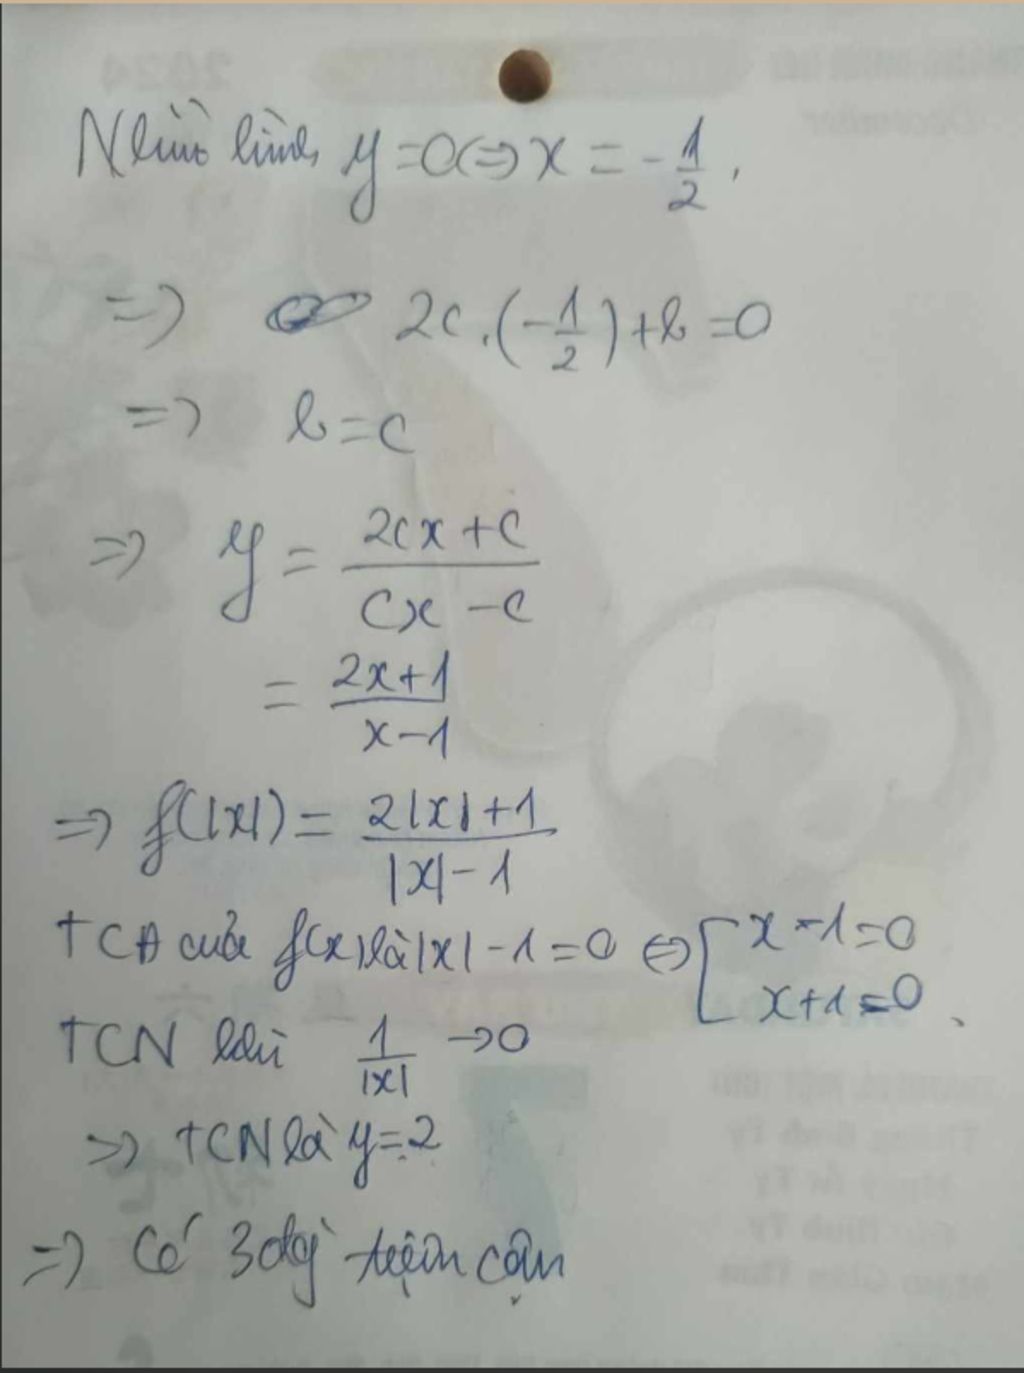 Nhìn hình y = 0 ⇔ x = -1/2,
=> 2c.(-1/2) + b = 0
=> b = c
=> y = (2cx + c)/(cx - c)
= (2x + 1)/(x - 1)
=> f(|x|) = (2|x| + 1)/(|x| - 1)
TCĐ của f(x) là |x| - 1 = 0 ⇔ [x - 1 = 0
x + 1 = 0.
TCN khi 1/|x| → 0
=> TCN là y = 2
=> Có 3 đg tiệm cận